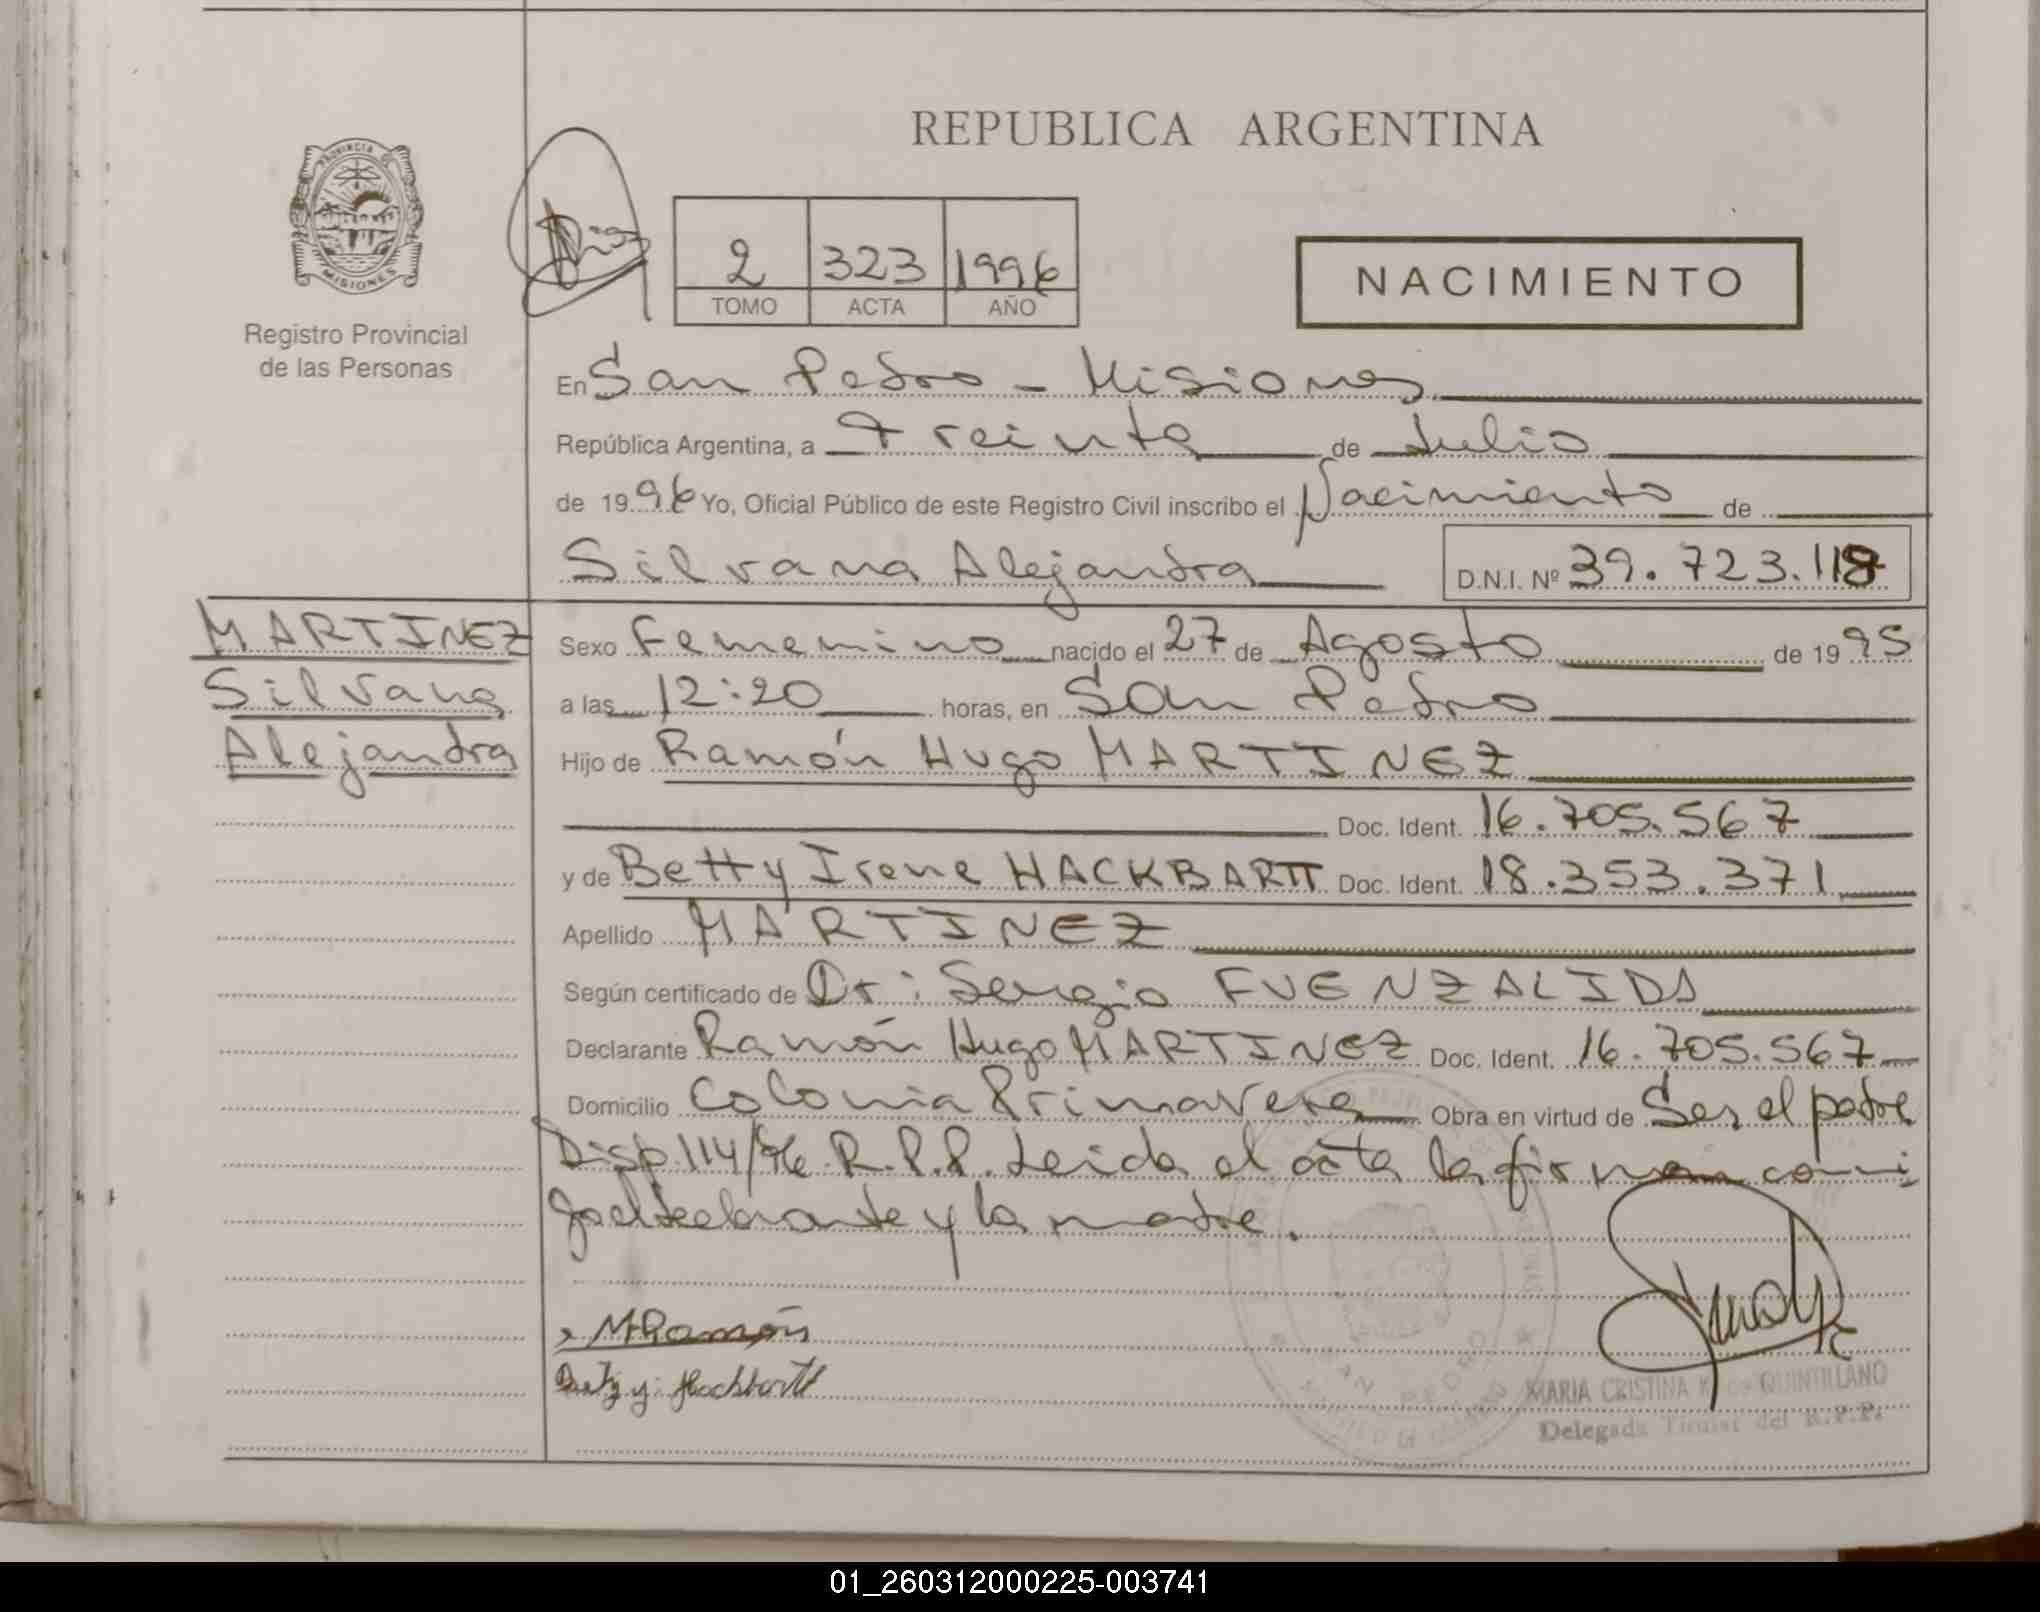 REPUBLICA ARGENTINA
PROVINCIA DE
MISIONES
Registro Provincial
de las Personas
2 323 1996
TOMO ACTA AÑO
NACIMIENTO
En San Pedro - Misiones
República Argentina, a Treinta de Julio
de 1996 Yo, Oficial Público de este Registro Civil inscribo el Nacimiento de
Silvana Alejandra D.N.I. Nº 39.723.118
MARTINEZ
Silvana
Alejandra
Sexo Femenino nacido el 27 de Agosto de 1995
a las 12:20 horas, en San Pedro
Hijo de Ramón Hugo MARTINEZ
Doc. Ident. 16.705.567
y de Betty Irene HACKBARTT Doc. Ident. 18.353.371
Apellido MARTINEZ
Según certificado de Dr: Sergio FUENZALIDA
Declarante Ramón Hugo MARTINEZ Doc. Ident. 16.705.567
Domicilio Colonia Primavera Obra en virtud de Ser el padre
Disp. 114/96 R.P.P. Leida el acta la firman conmi
go el declarante y la madre.
M Ramón
MARIA CRISTINA QUINTILLANO
Delegada Titular del R.P.P.
SAN PEDRO
01_260312000225-003741